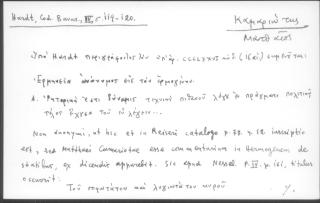 Hardt, Cod. Bavar., III, σ. 119-120.
Καμαριώτης
Ματθαῖος
Ὑπὸ Hardt περιγράφονται ὑπ' ἀρ. (16 αἰ.)
Ἑρμηνεία ἀνώνυμος εἰς τὸν Ἑρμογένην.
Ῥητορική ἐστι δύναμις τεχνικὴ πιθανοῦ λόγου ἐν πράγματι πολιτικῷ
τέλος ἔχουσα τοῦ εὖ λέγειν...
Non anonymi, ut hic et in Reiseri catalogo p. 72. inscriptio
est, sed Matthaei Camariotae esse commentarium in Hermogenem de
statibus, ex dicendis apparebit. Sic apud Nessel. p. IV. p. 161, titulus
occurrit:
Τοῦ σοφωτάτου καὶ λογιωτάτου κυροῦ